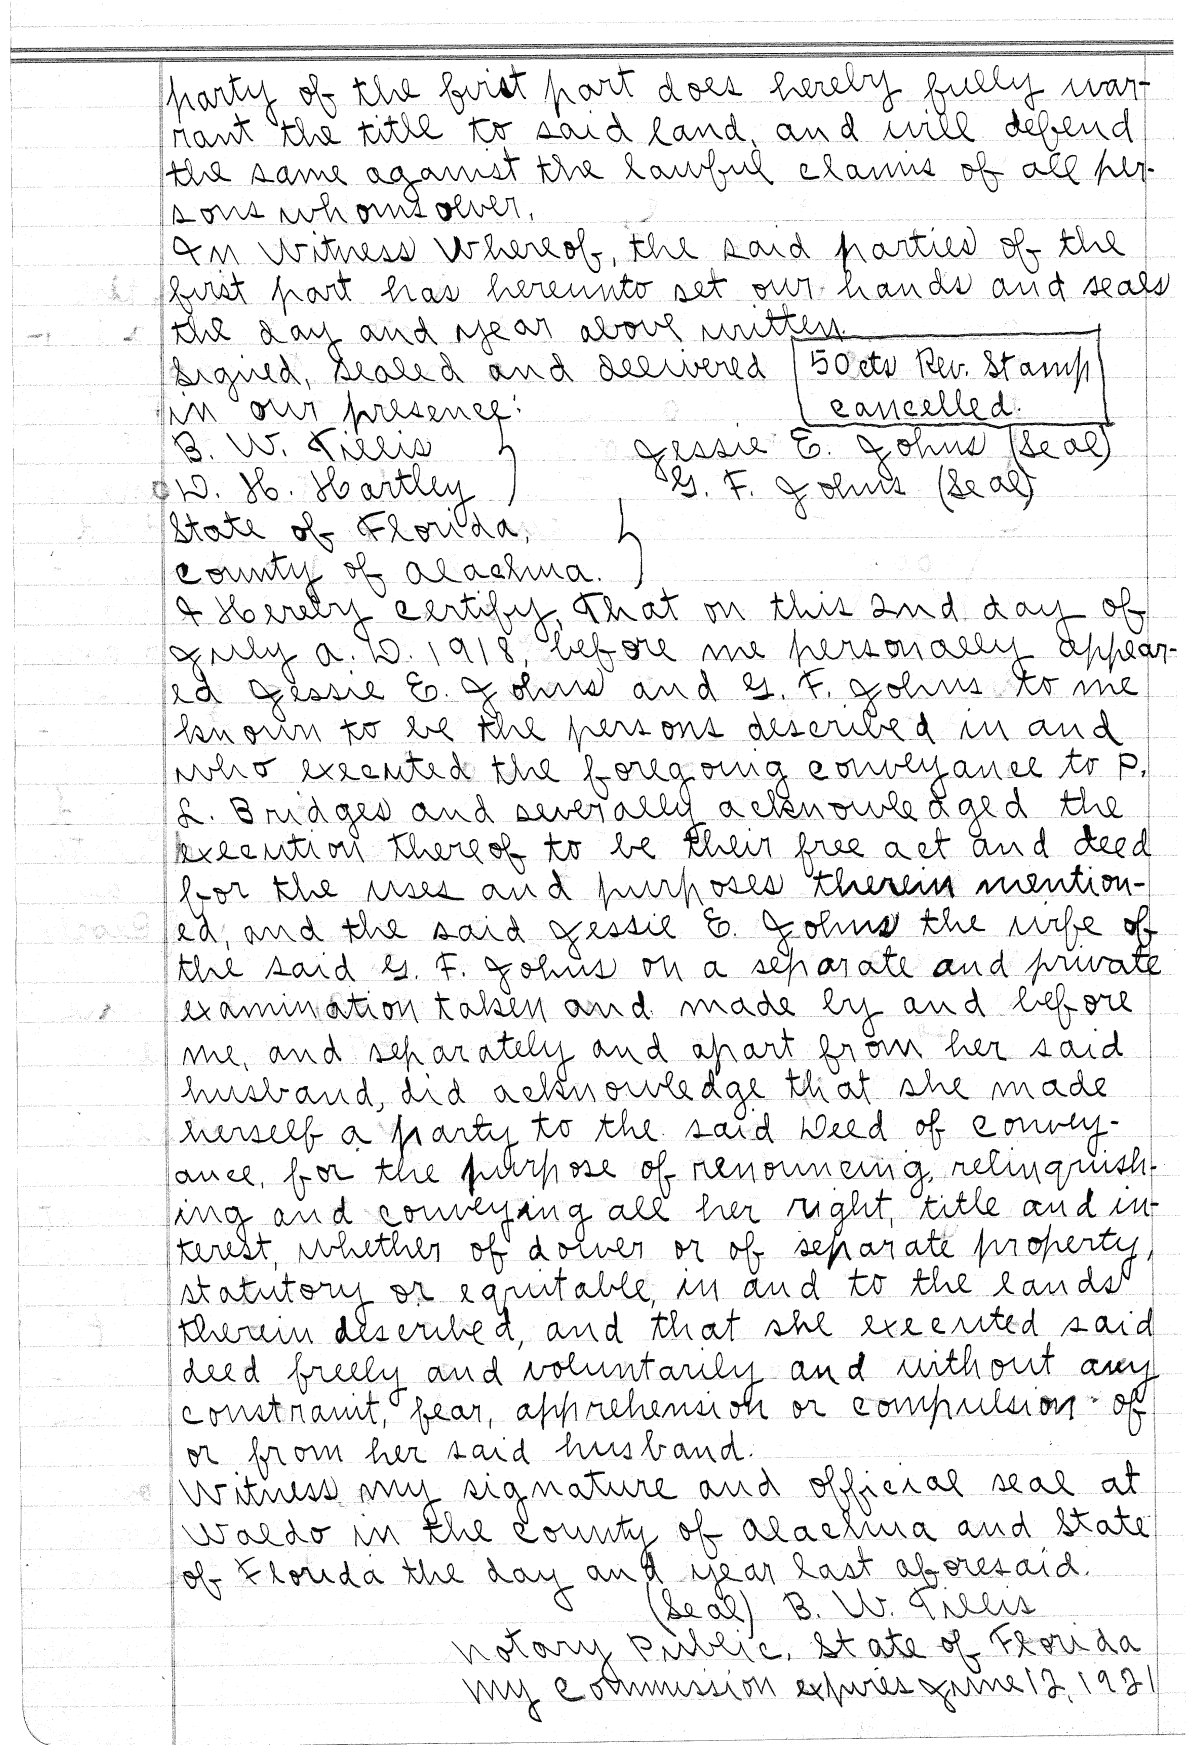 party of the first part does hereby fully war-
rant the title to said land, and will defend
the same against the lawful claims of all per-
sons whomsoever.
In Witness Whereof, the said parties of the
first part has hereunto set our hands and seals
the day and year above written.
Signed, Sealed and delivered
50cts Rev. Stamp
in our presence:
cancelled.
B. W. Tillis
Jessie E. Johns (Seal)
W. H. Hartley
G. F. Johns (Seal)
State of Florida,
County of Alachua.
I Hereby certify, That on this 2nd day of
July A. D. 1918, before me personally appear-
ed Jessie E. Johns and G. F. Johns to me
known to be the persons described in and
who executed the foregoing conveyance to P.
L. Bridges and severally acknowledged the
execution thereof to be their free act and deed
for the uses and purposes therein mention-
ed, and the said Jessie E. Johns the wife of
the said G. F. Johns on a separate and private
examination taken and made by and before
me, and separately and apart from her said
husband, did acknowledge that she made
herself a party to the said Deed of convey-
ance, for the purpose of renouncing, relinquish-
ing and conveying all her right, title and in-
terest, whether of dower or of separate property,
statutory or equitable, in and to the lands
therein described, and that she executed said
deed freely and voluntarily and without any
constraint, fear, apprehension or compulsion of
or from her said husband.
Witness my signature and official seal at
Waldo in the County of Alachua and State
of Florida the day and year last aforesaid.
(Seal) B. W. Tillis
Notary Public, State of Florida
My Commission expires June 12, 1921